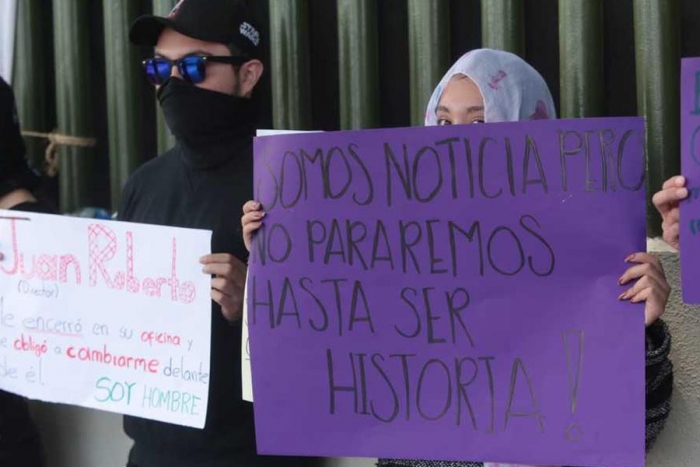 STAR
WARS
Juan Roberto
(Director)
e encerró en su oficina y
e obligó a cambiarme delante
de él.
SOY HOMBRE
SOMOS NOTICIA PERO
NO PARAREMOS
HASTA SER
HISTORIA!